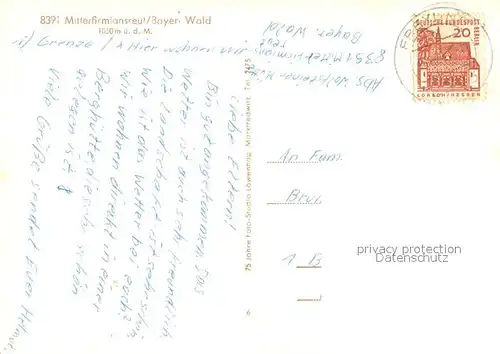 8391 Mitterfirmiansreut/Bayer. Wald
1050 m ü. d. M.
x) Grenze / x Hier wohnen wir
Abs Wolfsteiner
8351 Mitterfirmians
reut
Bayer. Wald
DEUTSCHE BUNDESPOST BERLIN
20
LORSCH/HESSEN
Liebe Eltern!
Bin gut angekommen. Das
Wetter ist auch sehr freundlich
Die Landschaft ist sehr schön.
Wie ist das Wetter bei euch?
Wir wohnen direkt in einer
Berghütte, die sehr schön
gelegen ist.
Viele Grüße sendet Euer Helmut.
75 Jahre Foto-Studio Löwenhag, Marktredwitz Tel. 2475
6
An Fam.
1 B
privacy protection
Datenschutz